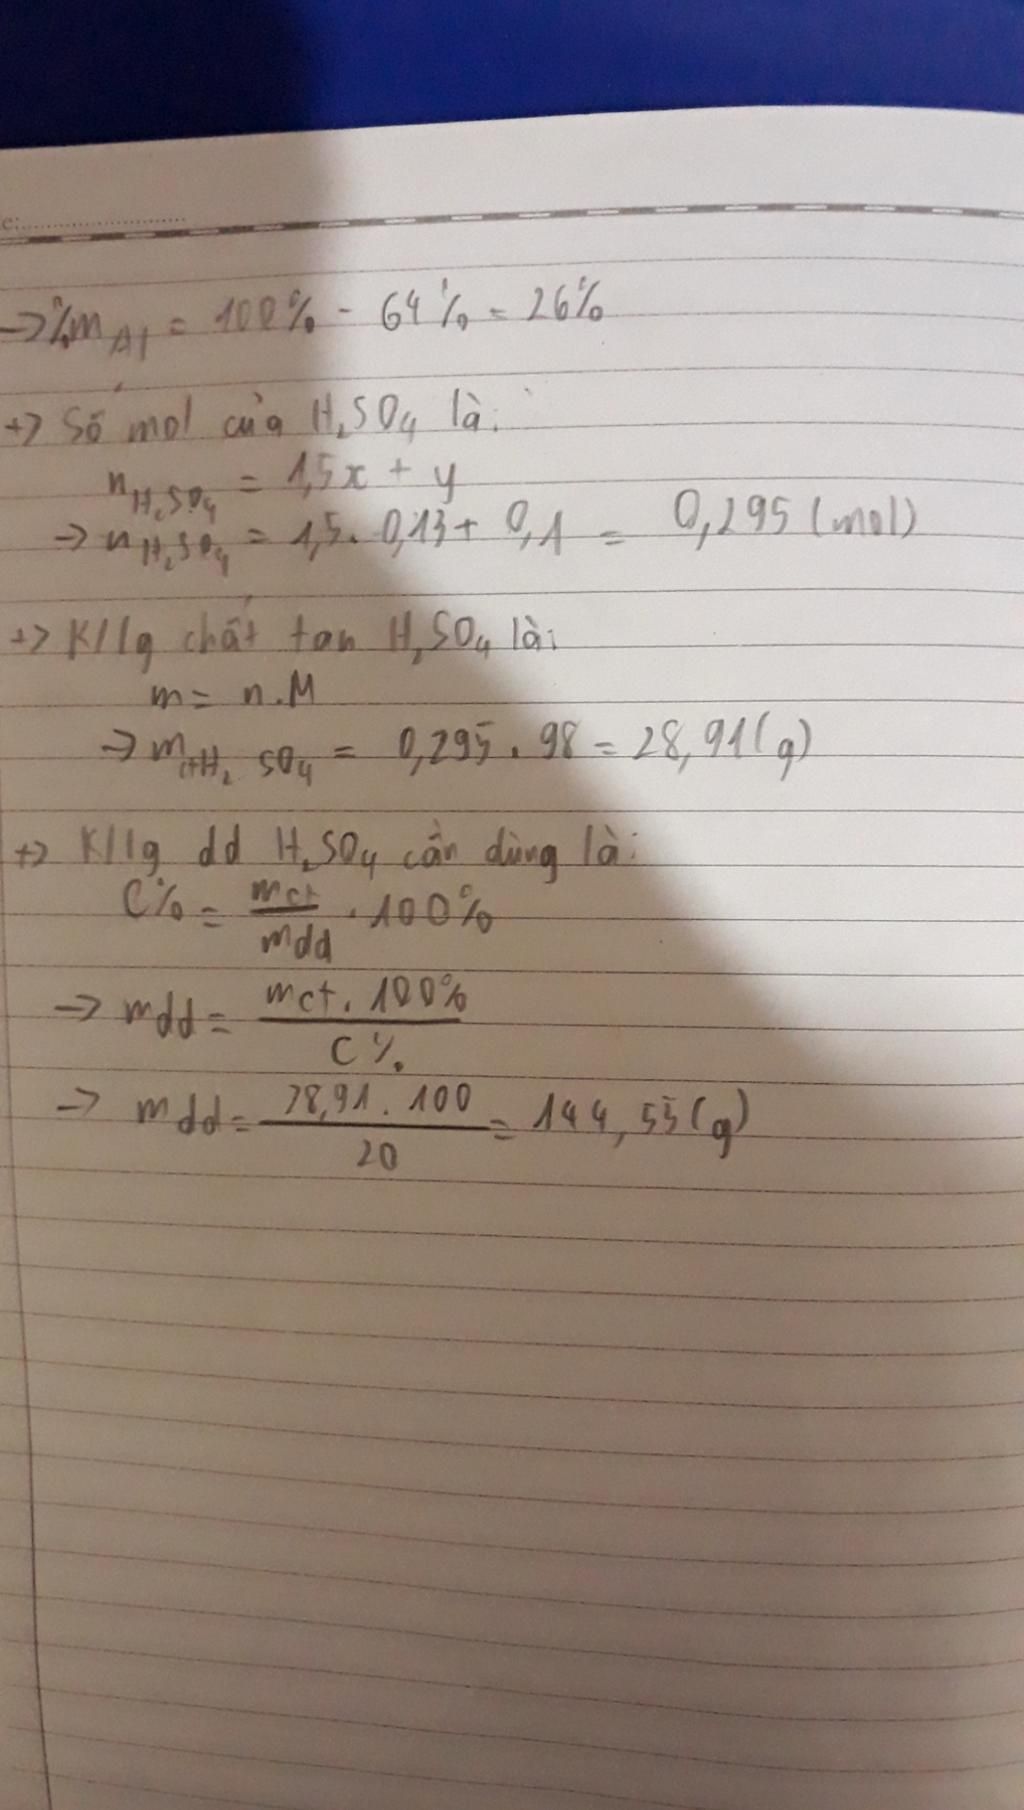 e:........................
→ %mAl = 100% - 64% = 26%
+> Số mol của H2SO4 là:
nH2SO4 = 1,5x + y
→ nH2SO4 = 1,5. 0,13 + 0,1 = 0,295 (mol)
+> K/lg chất tan H2SO4 là:
m = n.M
→ mctH2SO4 = 0,295 . 98 = 28,91 (g)
+> K/lg dd H2SO4 cần dùng là:
C% = mct/mdd . 100%
→ mdd = mct. 100%/C%
→ mdd = 28,91. 100/20 = 144,55 (g)